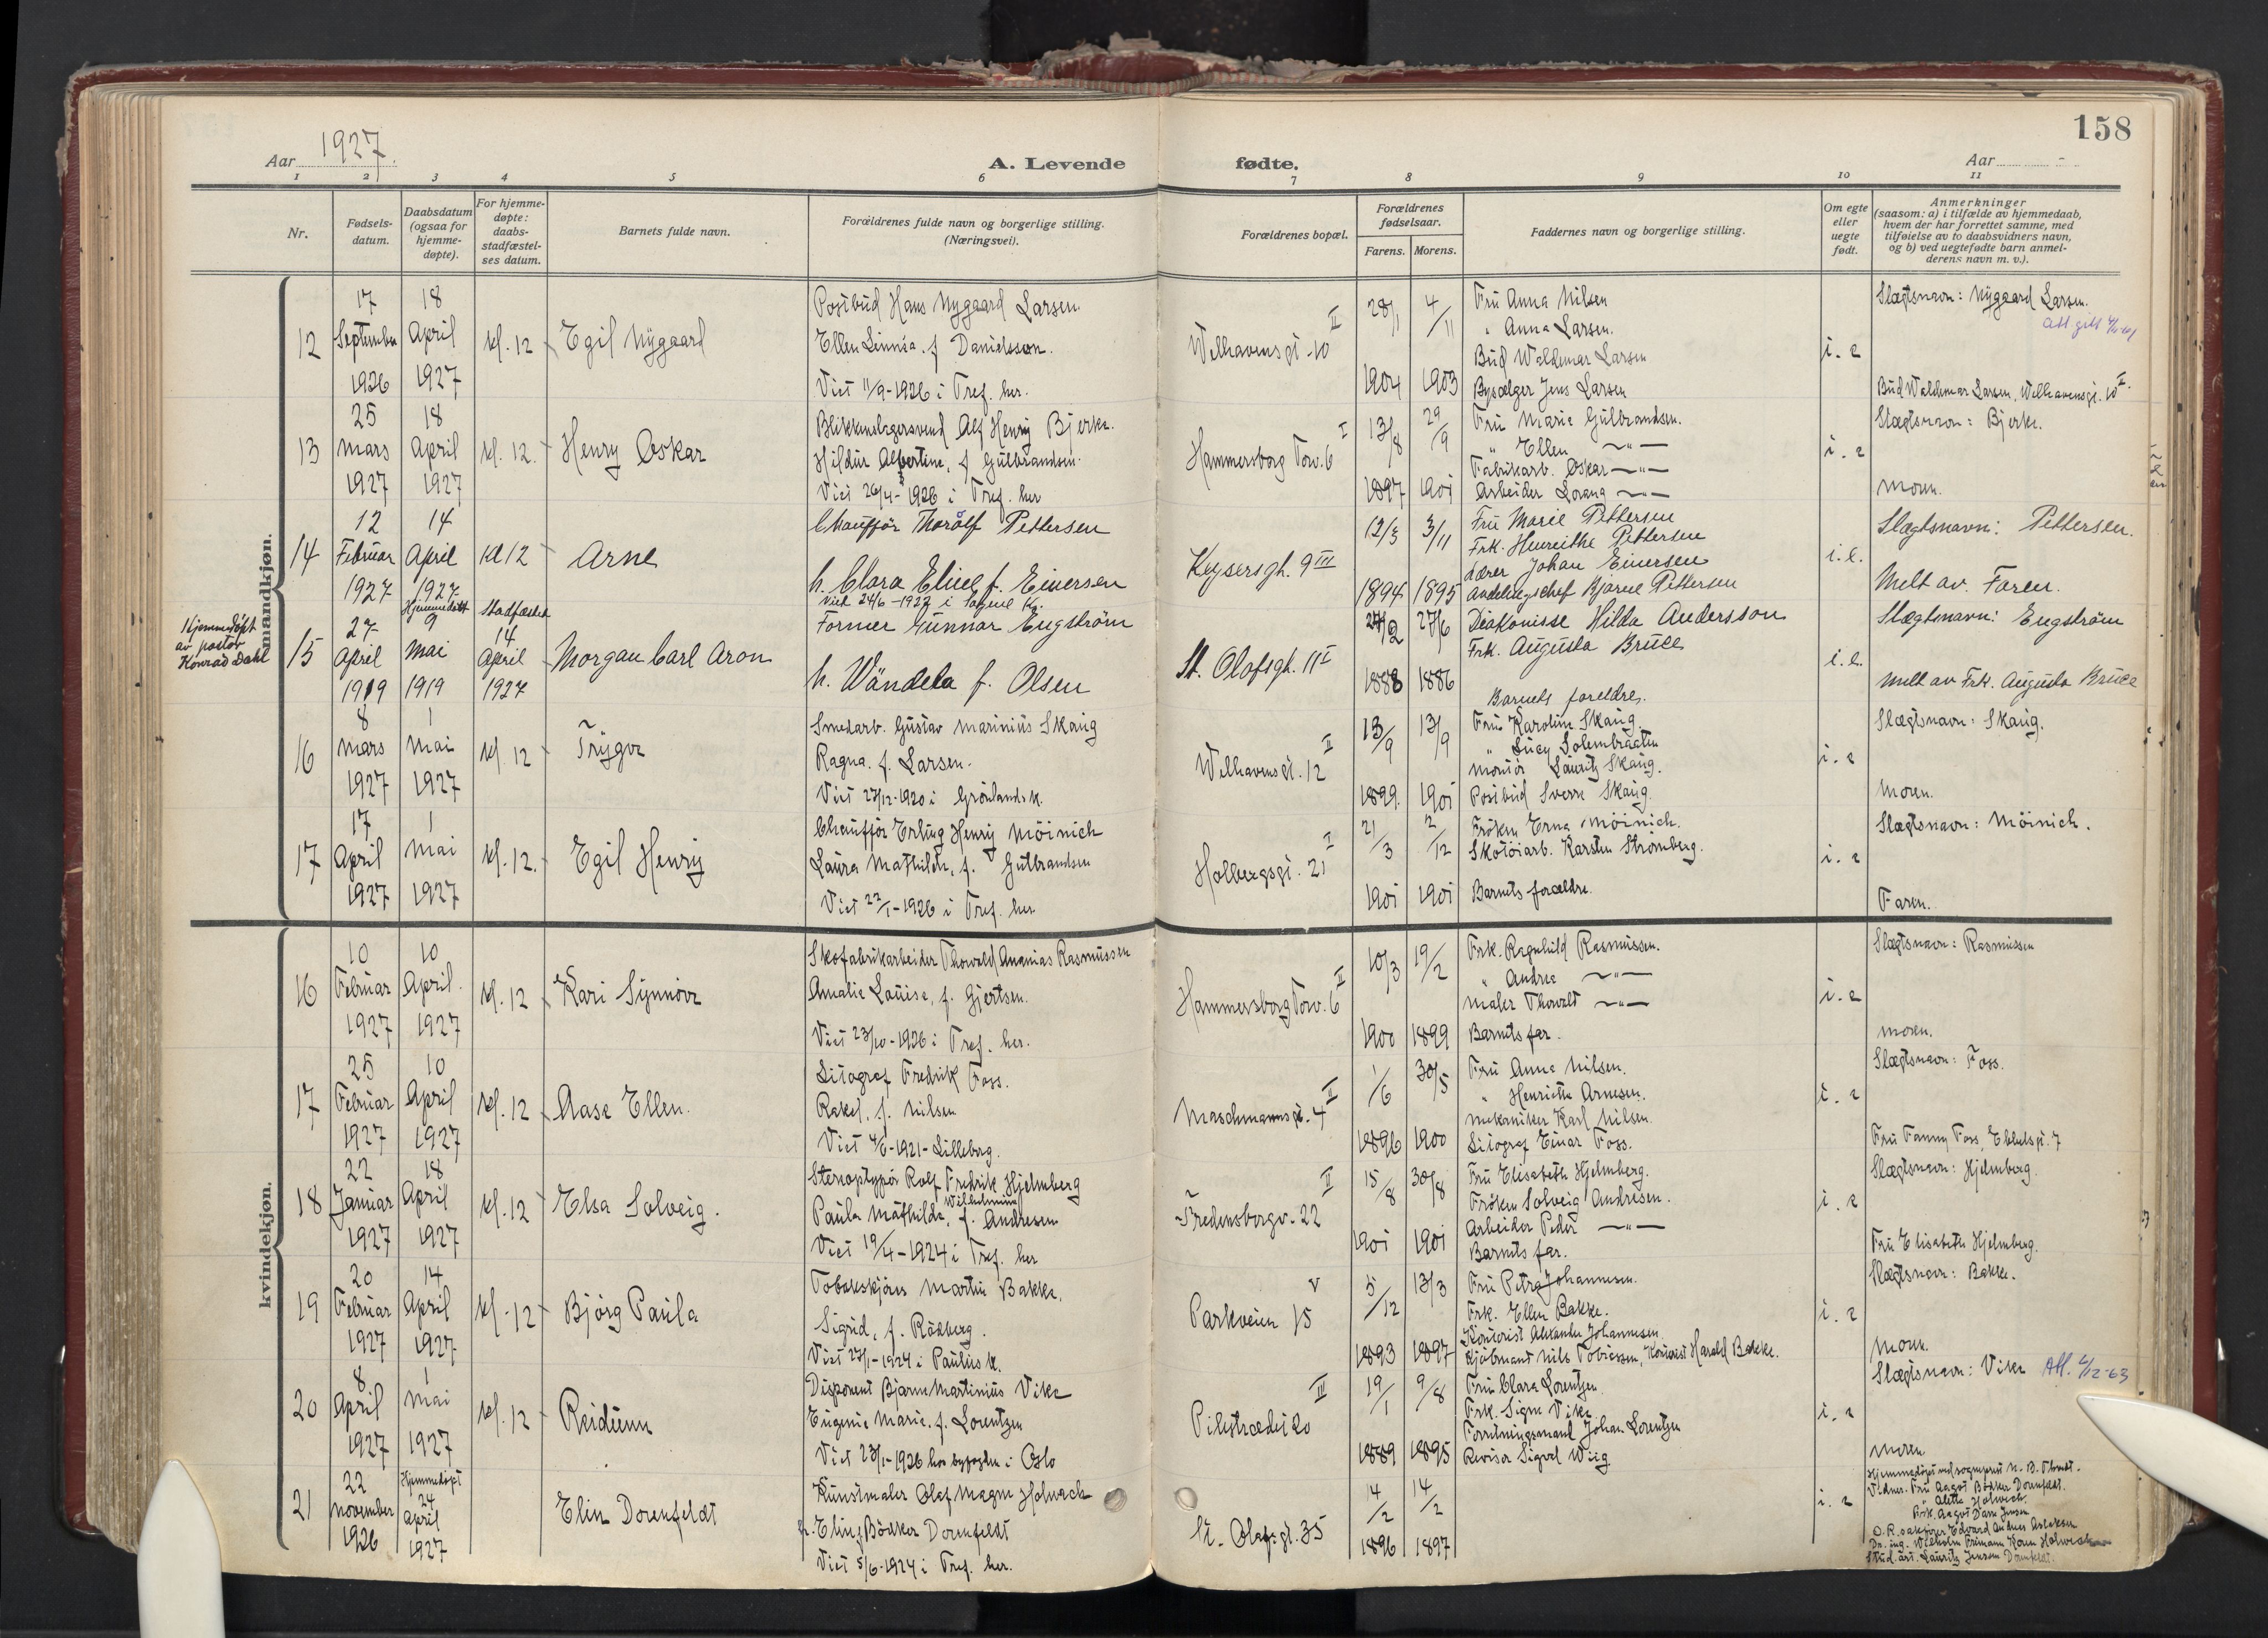 158
Aar 1927.
A. Levende fødte.
Aar
1 2 3 4 5 6 7 8 9 10 11
Nr.
Fødsels-
datum.
Daabsdatum
(ogsaa for
hjemme-
døpte).
For hjemme-
døpte:
daabs-
stadfæstel-
ses datum.
Barnets fulde navn.
Forældrenes fulde navn og borgerlige stilling.
(Næringsvei).
Forældrenes bopæl.
Forældrenes
fødselsaar.
Farens. Morens.
Faddernes navn og borgerlige stilling.
Om egte
eller
uegte
født.
Anmerkninger
(saasom: a) i tilfælde av hjemmedaab,
hvem der har forrettet samme, med
tilføielse av to daabsvidners navn,
og b) ved uegtefødte barn anmel-
derens navn m. v.).
mandkjøn.
12
17
September
1926
18
April
1927
kl. 12
Egil Nygaard
Postbud Hans Nygaard Larsen.
Ellen Linnéa. f. Danielsson.
Viet 11/9-1926 i Tref. her.
Welhavensgt. 10 II
28/1
1904
4/11
1903
Fru Anna Nilsen
" Anna Larsen.
Bud Waldemar Larsen
Bysælger Jens Larsen
i. e
Slægtsnavn: Nygaard Larsen.
Bud Waldemar Larsen, Welhavensgt. 10 II.
13
25
mars
1927
18
April
1927
kl. 12.
Henry Oskar
Blikkenslagersvend Alf Henry Bjerke.
Hildur Albertine, f. Gulbrandsen.
Viet 26/4-1926 i Tref. her
Hammersborg Torv. 6 I
13/8
1897
29/9
1901
Fru Marie Gulbrandsen.
" Ellen —"—
Fabrikarb. Oskar —"—
Arbeider Lorang —"—
i. e
Slægtsnavn: Bjerke.
Moren.
14
12
Februar
1927
14
April
1927.
kl 12
Arne
Chauffør Thorolf Pettersen
h. Clara Eline f. Einersen
Viet 24/6-1922 i Sagene K.
Keysersgt. 9 III
12/3
1894
3/11
1895
Fru Marie Pettersen
Frk. Henriethe Pettersen
Lærer Johan Einersen
Avdelingschef Bjarne Pettersen
i. e.
Slægtsnavn: Pettersen.
Melt av Faren.
Hjemmedøpt
av pastor
Konrad Dahl
15
27
April
1919
Hjemmedøpt
9
Mai
1919
Stadfæstet
14
April
1927
Morgan Carl Aron
Former Gunnar Engström
h. Wändela f. Olsen
St. Olafsgt. 11 I
27/2
1888
27/6
1886
Diakonisse Hilda Andersson
Frk. Augusta Bruce
Barnets foreldre.
i. e.
Slægtsnavn: Engström
Melt av Frk. Augusta Bruce
16
8
mars
1927
1
mai
1927
kl. 12
Trygve
Smedarb. Gustav Marinius Skaug
Ragna. f. Larsen.
Viet 27/12-1920 i Grønlandsk.
Welhavensgt. 12 II
13/9
1899.
13/9
1901
Fru Karoline Skaug.
" Lucy Solembraaten
Montør Lauritz Skaug.
Postbud Sverre Skaug.
i. e
Slægtsnavn: Skaug.
Moren.
17
17
April
1927
1
mai
1927
kl. 12.
Egil Henry
Chauffør Erling Henry Möinich
Laura Mathilde, f. Gulbrandsen
Viet 22/1-1926 i Tref. her
Holbergsgt. 21 I
21/3
1901
2/12
1901
Frøken Erna Möinich.
Skotøiarb. Karsten Strømberg.
Barnets forældre.
i. e
Slægtsnavn: Möinich.
Faren.
kvindekjøn.
16
10
Februar
1927
10
April.
1927
kl. 12
Kari Synnøve
Skofabrikarbeider Thorvald Ananias Rasmussen
Amalie Louise, f. Gjertsen.
Viet 23/10-1926 i Tref. her.
Hammersborg Torv. 6 II
10/3
1900
19/2
1899
Frk. Ragnhild Rasmussen.
" Andrea —"—
Maler Thorvald —"—
Barnets far.
i. e
Slægtsnavn: Rasmussen
Moren.
17
25
Februar
1927
10
April
1927
kl. 12
Aase Ellen.
Litograf Fredrik Foss.
Rakel, f. Nilsen
Viet 4/6-1921-Lilleborg.
Maschmannsgt. 4 II
1/6
1896
30/5
1900
Fru Anna Nilsen.
" Henriette Arnesen.
Mekaniker Karl Nilsen.
Litograf Einar Foss.
i. e
Slægtsnavn: Foss.
Fru Fanny Foss, Ebbelsgt. 7
18
22
Januar
1927
18
April
1927
kl. 12
Elsa Solveig.
Stereoptypør Rolf Fredrik Hjelmberg
Paula Mathilde, Wilhelmine f. Andresen
Viet 19/4-1924 i Tref. her
Fredensborgv. 22 II
15/8
1901
30/8
1901
Fru Elisabeth Hjelmberg.
Frøken Solveig Andresen.
Arbeider Peder —"—
Barnets far.
i. e
Slægtsnavn: Hjelmberg.
Fru Elisabeth Hjelmberg.
19
20
Februar
1927
14
April
1927
kl. 12
Bjørg Paula
Tobakskjører Martin Bakke.
Sigrid, f. Rödberg.
Viet 27/1-1924 i Paulus k.
Parkveien 15 V
5/12
1893
13/3
1897
Fru Petra Johannesen.
Frk. Ellen Bakke.
Kontorist Alexander Johannesen.
Kjøbmand Nils Tobiassen, Kontorist Harald Bakke.
i. e
Slægtsnavn: Bakke.
Moren.
20
8
April
1927
1
mai
1927
kl. 12
Reidunn
Disponent Bjarne Martinius Vike
Eugenie Marie. f. Lorentzen
Viet 23/1-1926 hos byfogden i Oslo
Pilestrædet 20 III
19/1
1889
9/8
1895
Fru Clara Lorentzen.
Frk. Signe Vike
Forretningsmand Johan Lorentzen
Revisor Sigurd Wiig
i. e
Slægtsnavn: Vike Att. 4/12-63
Moren
21
22
November
1926
Hjemmedøpt
24
April
1927
Elin Dorenfeldt
Kunstmaler Olaf Magne Holwech
h. Elin f. Bödker Dorenfeldt
Viet 5/6-1924 i Tref. her.
St. Olafsgt. 35
14/2
1896
14/2
1897
i. e
Hjemmedøpt ved sogneprest N. B. Tvedt.
Vidner. Fru Aagot Bödker Dorenfeldt.
" Aletta Holwech.
O. R. sakfører Edvard Andreas Aslaksen
Stud. art. Lauritz Jenson Dorenfeldt.